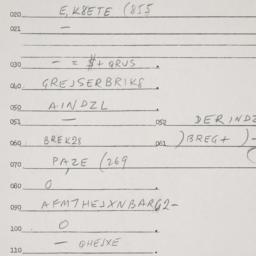 020 E,K8ETE (855
021 —
030 — = $+ QRUS
040 GREJSERBRIK8
050 AINDZL
051 — 052 DERINDZ
060 BREK28 061 )BREG+ )-
070 PAZE (269
080 O
090 AFM7HEJXNBARG2-
100 O
110 — QHEJXE